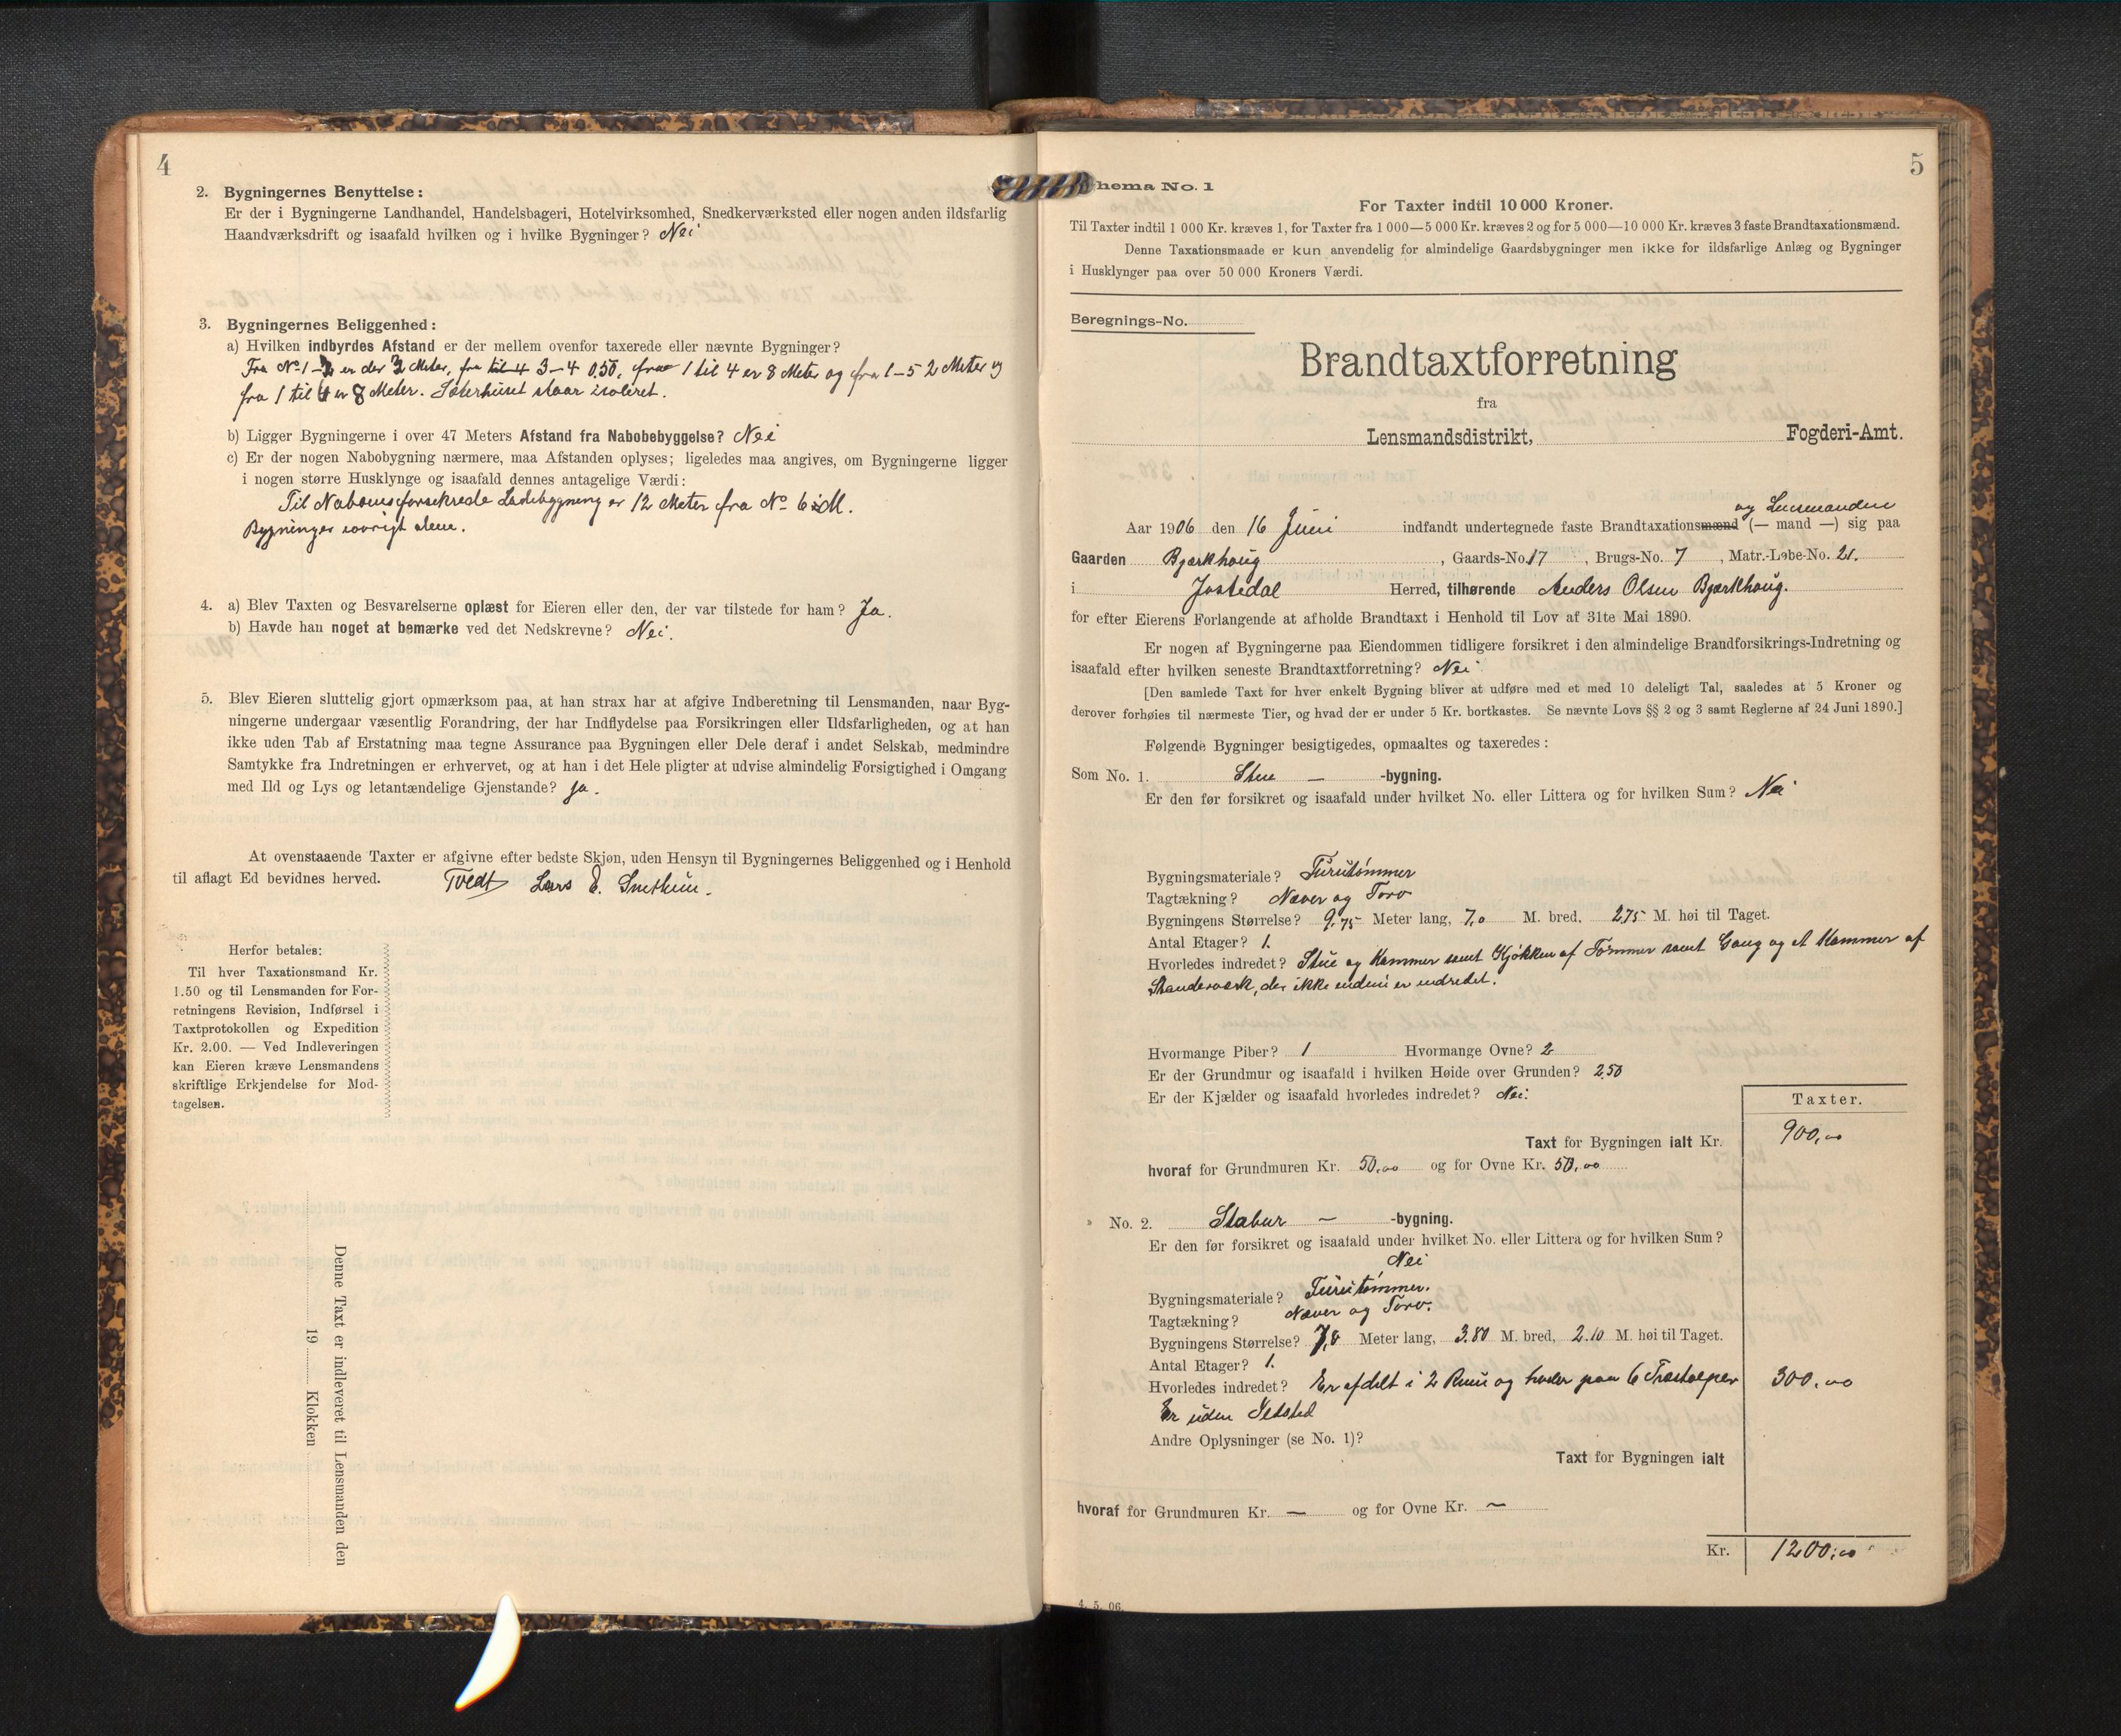 4
2. Bygningernes Benyttelse:
Er der i Bygningerne Landhandel, Handelsbageri, Hotelvirksomhed, Snedkerværksted eller nogen anden ildsfarlig
Haandværksdrift og isaafald hvilken og i hvilke Bygninger? Nei
3. Bygningernes Beliggenhed:
a) Hvilken indbyrdes Afstand er der mellem ovenfor taxerede eller nævnte Bygninger?
Fra No 1 - er der Meter, fra til 4 3-4 0,50, fra 1 til 4 er 8 Meter og fra 1-5 2 Meter og
fra 1 til er 8 Meter. staar isoleret.
b) Ligger Bygningerne i over 47 Meters Afstand fra Nabobebyggelse? Nei
c) Er der nogen Nabobygning nærmere, maa Afstanden oplyses; ligeledes maa angives, om Bygningerne ligger
i nogen større Husklynge og isaafald dennes antagelige Værdi:
Til Naboens forsekrede Ladebygning er 12 Meter fra No 6
Bygninger iøvrigt alene.
4. a) Blev Taxten og Besvarelserne oplæst for Eieren eller den, der var tilstede for ham? Ja.
b) Havde han noget at bemærke ved det Nedskrevne? Nei.
5. Blev Eieren sluttelig gjort opmærksom paa, at han strax har at afgive Indberetning til Lensmanden, naar Byg-
ningerne undergaar væsentlig Forandring, der har Indflydelse paa Forsikringen eller Ildsfarligheden, og at han
ikke uden Tab af Erstatning maa tegne Assurance paa Bygningen eller Dele deraf i andet Selskab, medmindre
Samtykke fra Indretningen er erhvervet, og at han i det Hele pligter at udvise almindelig Forsigtighed i Omgang
med Ild og Lys og letantændelige Gjenstande? Ja.
At ovenstaaende Taxter er afgivne efter bedste Skjøn, uden Hensyn til Bygningernes Beliggenhed og i Henhold
til aflagt Ed bevidnes herved. Tvedt Lars E. Snethun.
Herfor betales:
Til hver Taxationsmand Kr.
1.50 og til Lensmanden for For-
retningens Revision, Indførsel i
Taxtprotokollen og Expedition
Kr. 2.00. — Ved Indleveringen
kan Eieren kræve Lensmandens
skriftlige Erkjendelse for Mod-
tagelsen.
Denne Taxt er indleveret til Lensmanden den
19 Klokken
5
hema No. 1
For Taxter indtil 10 000 Kroner.
Til Taxter indtil 1 000 Kr. kræves 1, for Taxter fra 1 000—5 000 Kr. kræves 2 og for 5 000—10 000 Kr. kræves 3 faste Brandtaxationsmænd.
Denne Taxationsmaade er kun anvendelig for almindelige Gaardsbygninger men ikke for ildsfarlige Anlæg og Bygninger
i Husklynger paa over 50 000 Kroners Værdi.
Beregnings-No.
Brandtaxtforretning
fra
Lensmandsdistrikt, Fogderi-Amt.
og Lensmanden
Aar 1906 den 16 Juni indfandt undertegnede faste Brandtaxationsmænd (— mand —) sig paa
Gaarden Bjærkhoug, Gaards-No. 17, Brugs-No. 7, Matr.-Løbe-No. 21.
i Jostedal Herred, tilhørende Anders Olsen Bjærkhoug.
for efter Eierens Forlangende at afholde Brandtaxt i Henhold til Lov af 31te Mai 1890.
Er nogen af Bygningerne paa Eiendommen tidligere forsikret i den almindelige Brandforsikrings-Indretning og
isaafald efter hvilken seneste Brandtaxtforretning? Nei
[Den samlede Taxt for hver enkelt Bygning bliver at udføre med et med 10 deleligt Tal, saaledes at 5 Kroner og
derover forhøies til nærmeste Tier, og hvad der er under 5 Kr. bortkastes. Se nævnte Lovs §§ 2 og 3 samt Reglerne af 24 Juni 1890.]
Følgende Bygninger besigtigedes, opmaaltes og taxeredes:
Som No. 1. Stue — -bygning.
Er den før forsikret og isaafald under hvilket No. eller Littera og for hvilken Sum? Nei
Bygningsmateriale? Furutømmer
Tagtækning? Næver og Torv
Bygningens Størrelse? 9,75 Meter lang, 7,0 M. bred, 2,75 M. høi til Taget.
Antal Etager? 1.
Hvorledes indredet? Stue og Kammer samt Kjøkken af Tømmer samt Gang og et Kammer af
Standerværk, der ikke endnu er indredet.
Hvormange Piber? 1 Hvormange Ovne? 2
Er der Grundmur og isaafald i hvilken Høide over Grunden? 2,50
Er der Kjælder og isaafald hvorledes indredet? Nei.
Taxter.
Taxt for Bygningen ialt Kr. 900,00
hvoraf for Grundmuren Kr. 50,00 og for Ovne Kr. 50,00
No. 2. Stabur — -bygning.
Er den før forsikret og isaafald under hvilket No. eller Littera og for hvilken Sum?
Nei
Bygningsmateriale? Furutømmer.
Tagtækning? Næver og Torv.
Bygningens Størrelse? Meter lang, 3.80 M. bred, 2.10 M. høi til Taget.
Antal Etager? 1.
Hvorledes indredet? Er afdelt i 2 Rum og hviler paa 6 Træstolper 300,00
Er uden Ildsted
Andre Oplysninger (se No. 1)?
Taxt for Bygningen ialt
hvoraf for Grundmuren Kr. — og for Ovne Kr. —
Kr. 1200,00
4. 5. 06.